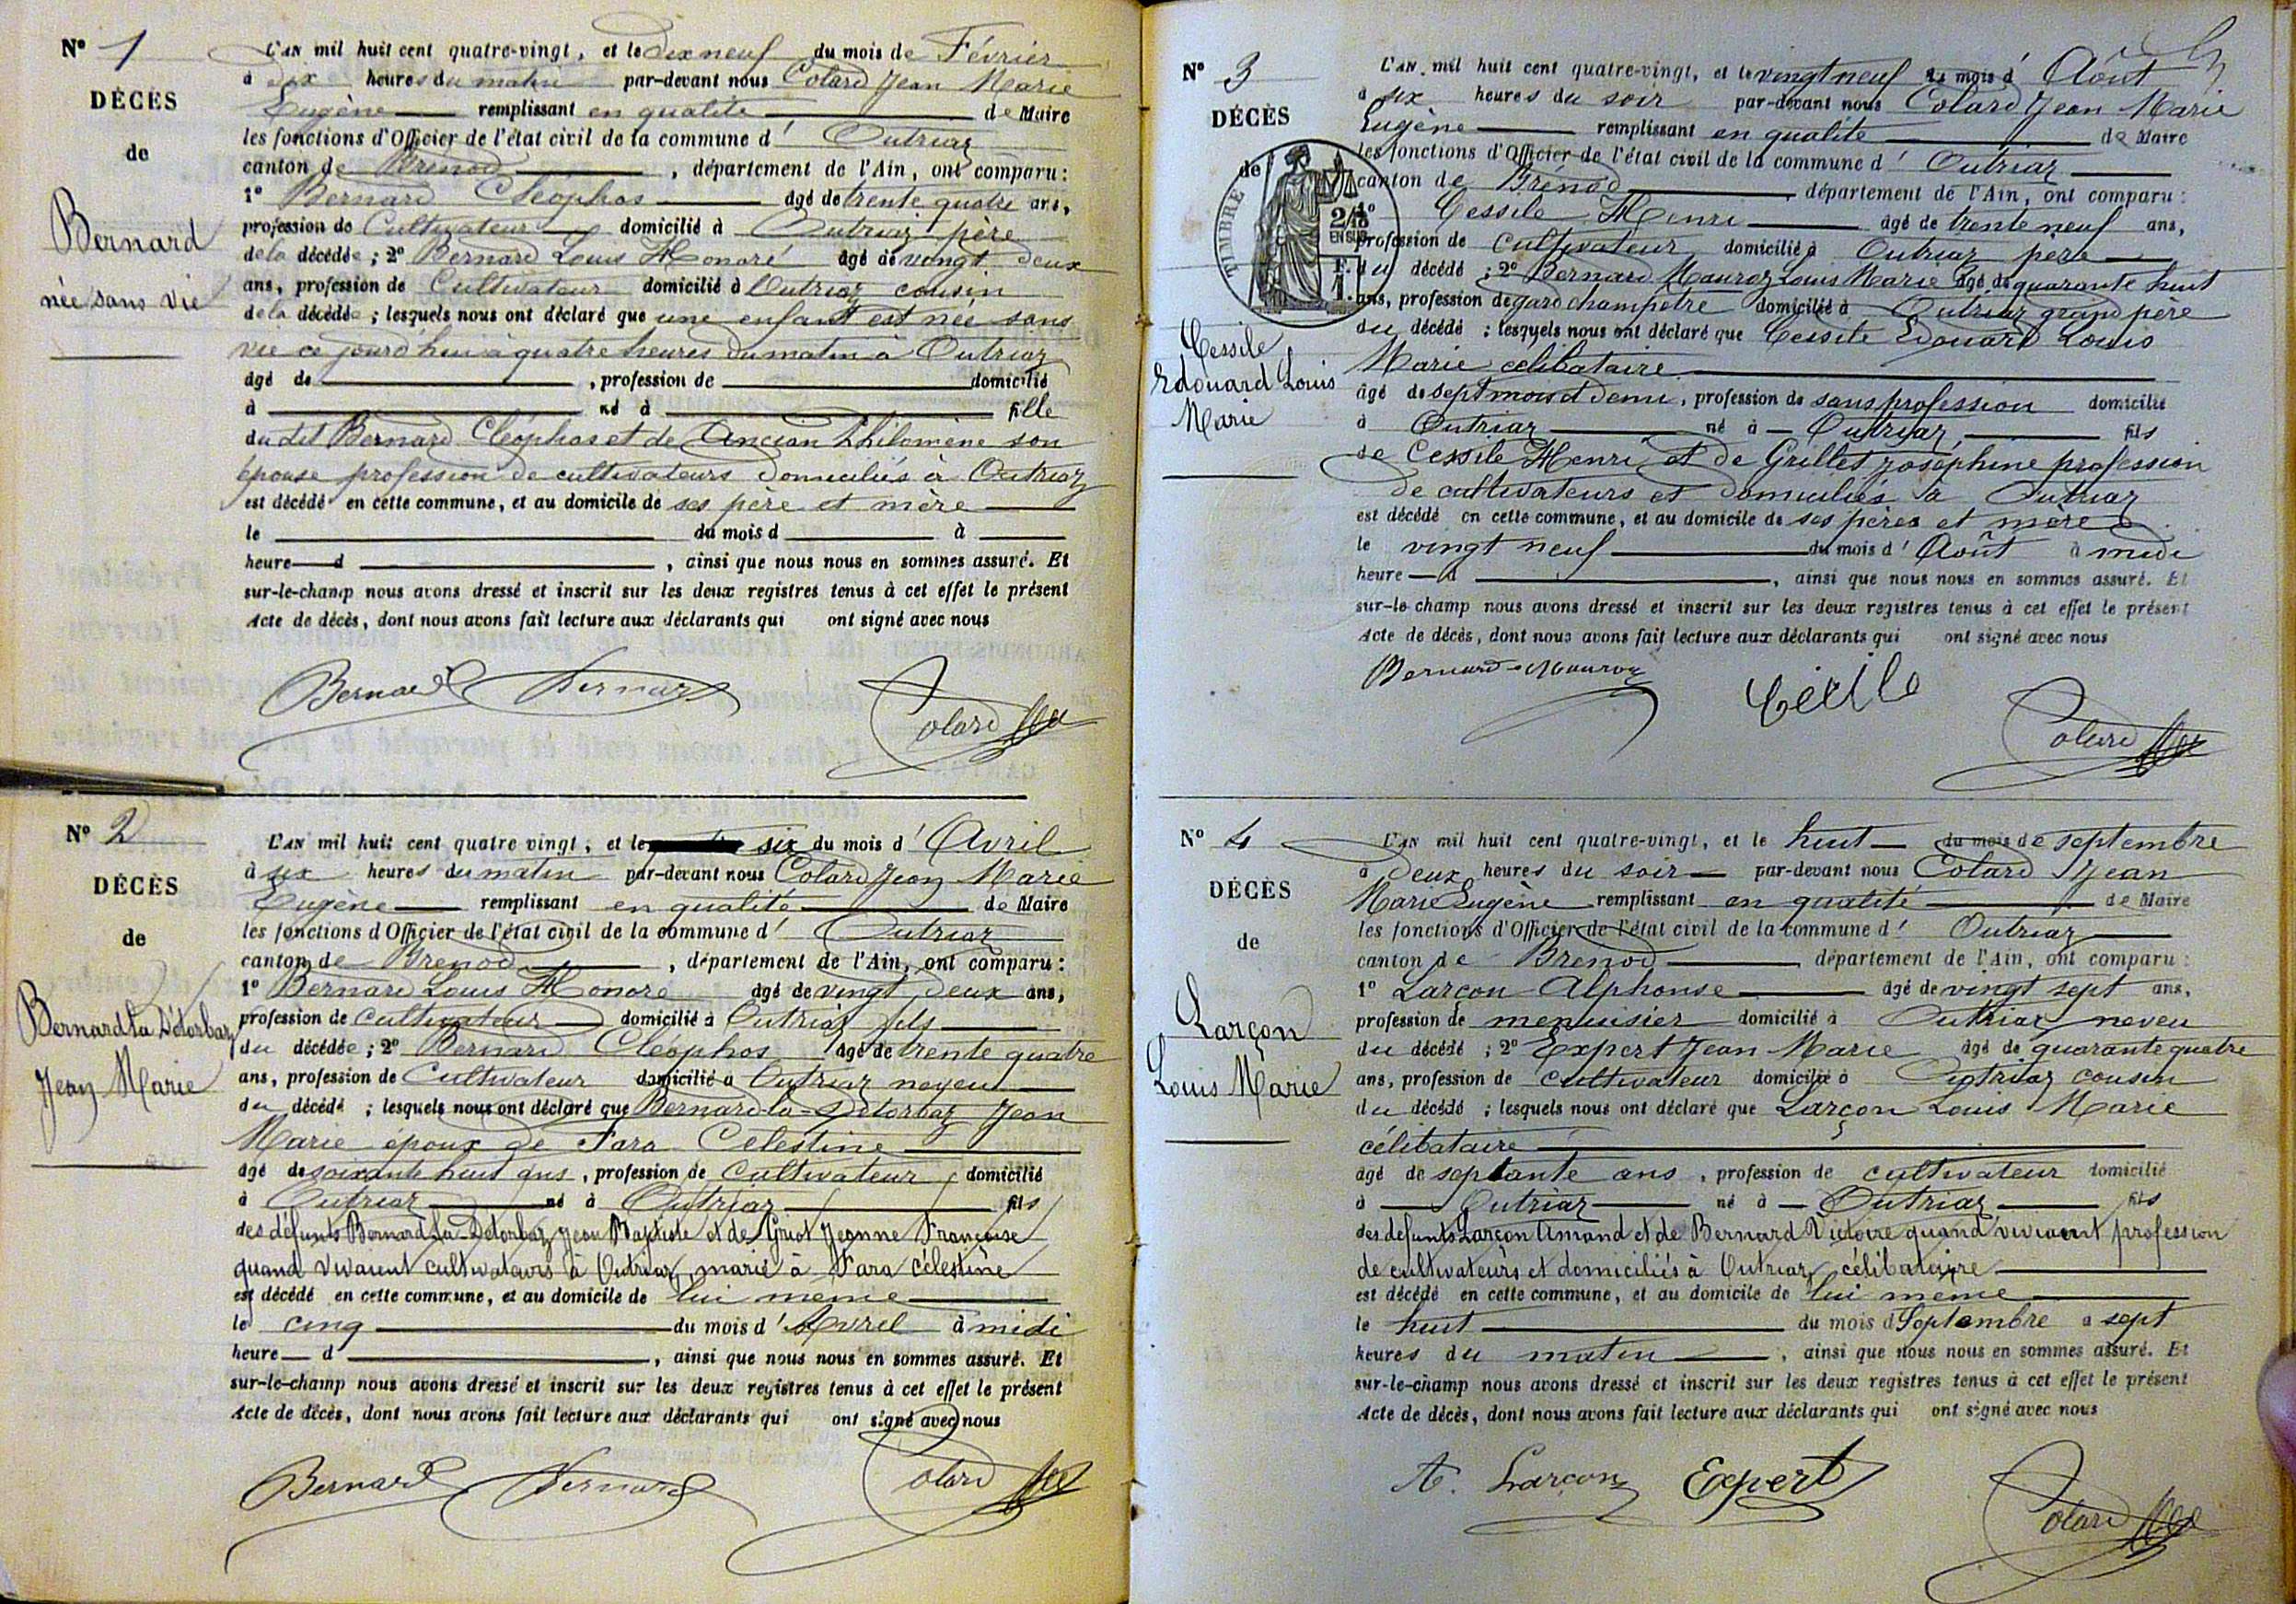 N° 1
DÉCÈS
de
Bernard
née sans vie
L'AN mil huit cent quatre-vingt, et le dix neuf du mois de Février
à dix heures du matin par-devant nous Colard Jean Marie
Eugène remplissant en qualité de Maire
les fonctions d'Officier de l'état civil de la commune d' Outriaz
canton de Brénod, département de l'Ain, ont comparu :
1° Bernard Cléophas âgé de trente quatre ans,
profession de Cultivateur domicilié à Outriaz père
de la décédée ; 2° Bernard Louis Honoré âgé de vingt deux
ans, profession de Cultivateur domicilié à Outriaz cousin
de la décédée ; lesquels nous ont déclaré que une enfant est née sans
vie ce jourd'hui à quatre heures du matin à Outriaz
âgé de , profession de domicilié
à né à fille
du dit Bernard Cléophas et de Ancian Philomène son
épouse profession de cultivateurs domiciliés à Outriaz
est décédé en cette commune, et au domicile de ses père et mère
le du mois d à
heure d , ainsi que nous nous en sommes assuré. Et
sur-le-champ nous avons dressé et inscrit sur les deux registres tenus à cet effet le présent
Acte de décès, dont nous avons fait lecture aux déclarants qui ont signé avec nous
Bernard Bernard Colard
N° 2
DÉCÈS
de
Bernard la Détorbaz
Jean Marie
L'AN mil huit cent quatre vingt, et le six du mois d' Avril
à six heures du matin par-devant nous Colard Jean Marie
Eugène remplissant en qualité de Maire
les fonctions d'Officier de l'état civil de la commune d' Outriaz
canton de Brenod, département de l'Ain, ont comparu :
1° Bernard Louis Honoré âgé de vingt deux ans,
profession de cultivateur domicilié à Outriaz fils
du décédée ; 2° Bernard Cléophos âgé de trente quatre
ans, profession de Cultivateur domicilié à Outriaz neveu
du décédé ; lesquels nous ont déclaré que Bernard-la-Détorbaz Jean
Marie époux de Fara Celestine
âgé de soixante huit ans, profession de Cultivateur domicilié
à Outriaz né à Outriaz fils
des défunts Bernard-La-Detorbaz Jean Baptiste et de Griot Jeanne Françoise
quand vivaient cultivateurs à Outriaz, marié à Fara célestine
est décédé en cette commune, et au domicile de lui meme
le cinq du mois d' Avril à midi
heure d , ainsi que nous nous en sommes assuré. Et
sur-le-champ nous avons dressé et inscrit sur les deux registres tenus à cet effet le présent
Acte de décès, dont nous avons fait lecture aux déclarants qui ont signé avec nous
Bernard Bernard Colard
N° 3
DÉCÈS
de
TIMBRE
2/10
EN SUS
Cessile
Edouard Louis
Marie
L'AN mil huit cent quatre-vingt, et le vingt neuf du mois d' Aôut
à six heures du soir par-devant nous Colard Jean Marie
Eugène remplissant en qualité de Maire
les fonctions d'Officier de l'état civil de la commune d' Outriaz
canton de Brénod département de l'Ain, ont comparu :
1° Cessile Henri âgé de trente neuf ans,
profession de cultivateur domicilié à Outriaz père
du décédé ; 2° Bernard Mauroz Louis Marie âgé de quarante huit
ans, profession de gard champetre domicilié à Outriaz grand père
du décédé ; lesquels nous ont déclaré que Cessile Edouard Louis
Marie célibataire
âgé de sept mois et demi, profession de sans profession domicilié
à Outriaz né à Outriaz fils
de Cessile Henri et de Grillet Joséphine profession
de cultivateurs et domiciliés à Outriaz
est décédé en cette commune, et au domicile de ses pères et mère
le vingt neuf du mois d' Août à midi
heure d , ainsi que nous nous en sommes assuré. Et
sur-le-champ nous avons dressé et inscrit sur les deux registres tenus à cet effet le présent
Acte de décès, dont nous avons fait lecture aux déclarants qui ont signé avec nous
Bernard-Mauroz Colard
N° 4
DÉCÈS
de
Larçon
Louis Marie
L'AN mil huit cent quatre-vingt, et le huit du mois de septembre
à deux heures du soir par-devant nous Colard Jean
Marie Eugène remplissant en qualité de Maire
les fonctions d'Officier de l'état civil de la commune d' Outriaz
canton de Brenod département de l'Ain, ont comparu :
1° Larçon Alphonse âgé de vingt sept ans,
profession de menuisier domicilié à Outriaz neveu
du décédé ; 2° Expert Jean Marie âgé de quarante quatre
ans, profession de cultivateur domicilié à Outriaz cousin
du décédé ; lesquels nous ont déclaré que Larçon Louis Marie
célibataire
âgé de septante ans, profession de cultivateur domicilié
à Outriaz né à Outriaz fils
des défunts Larçon Amand et de Bernard Victoire quand vivaient profession
de cultivateurs et domiciliés à Outriaz célibataire
est décédé en cette commune, et au domicile de lui meme
le huit du mois d Septembre à sept
heures du matin , ainsi que nous nous en sommes assuré. Et
sur-le-champ nous avons dressé et inscrit sur les deux registres tenus à cet effet le présent
Acte de décès, dont nous avons fait lecture aux déclarants qui ont signé avec nous
A. Larçon Expert Colard